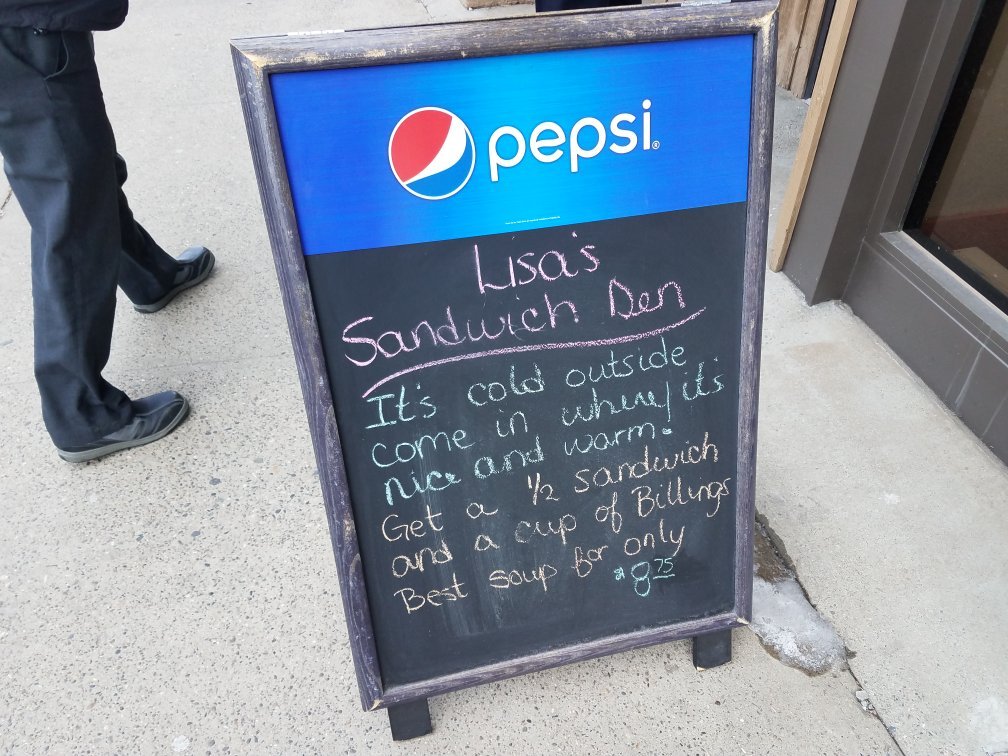 pepsi®
Lisa's
Sandwich Den
It's cold outside
come in where it's
nice and warm!
Get a ½ sandwich
and a cup of Billings
Best soup for only
$8.75